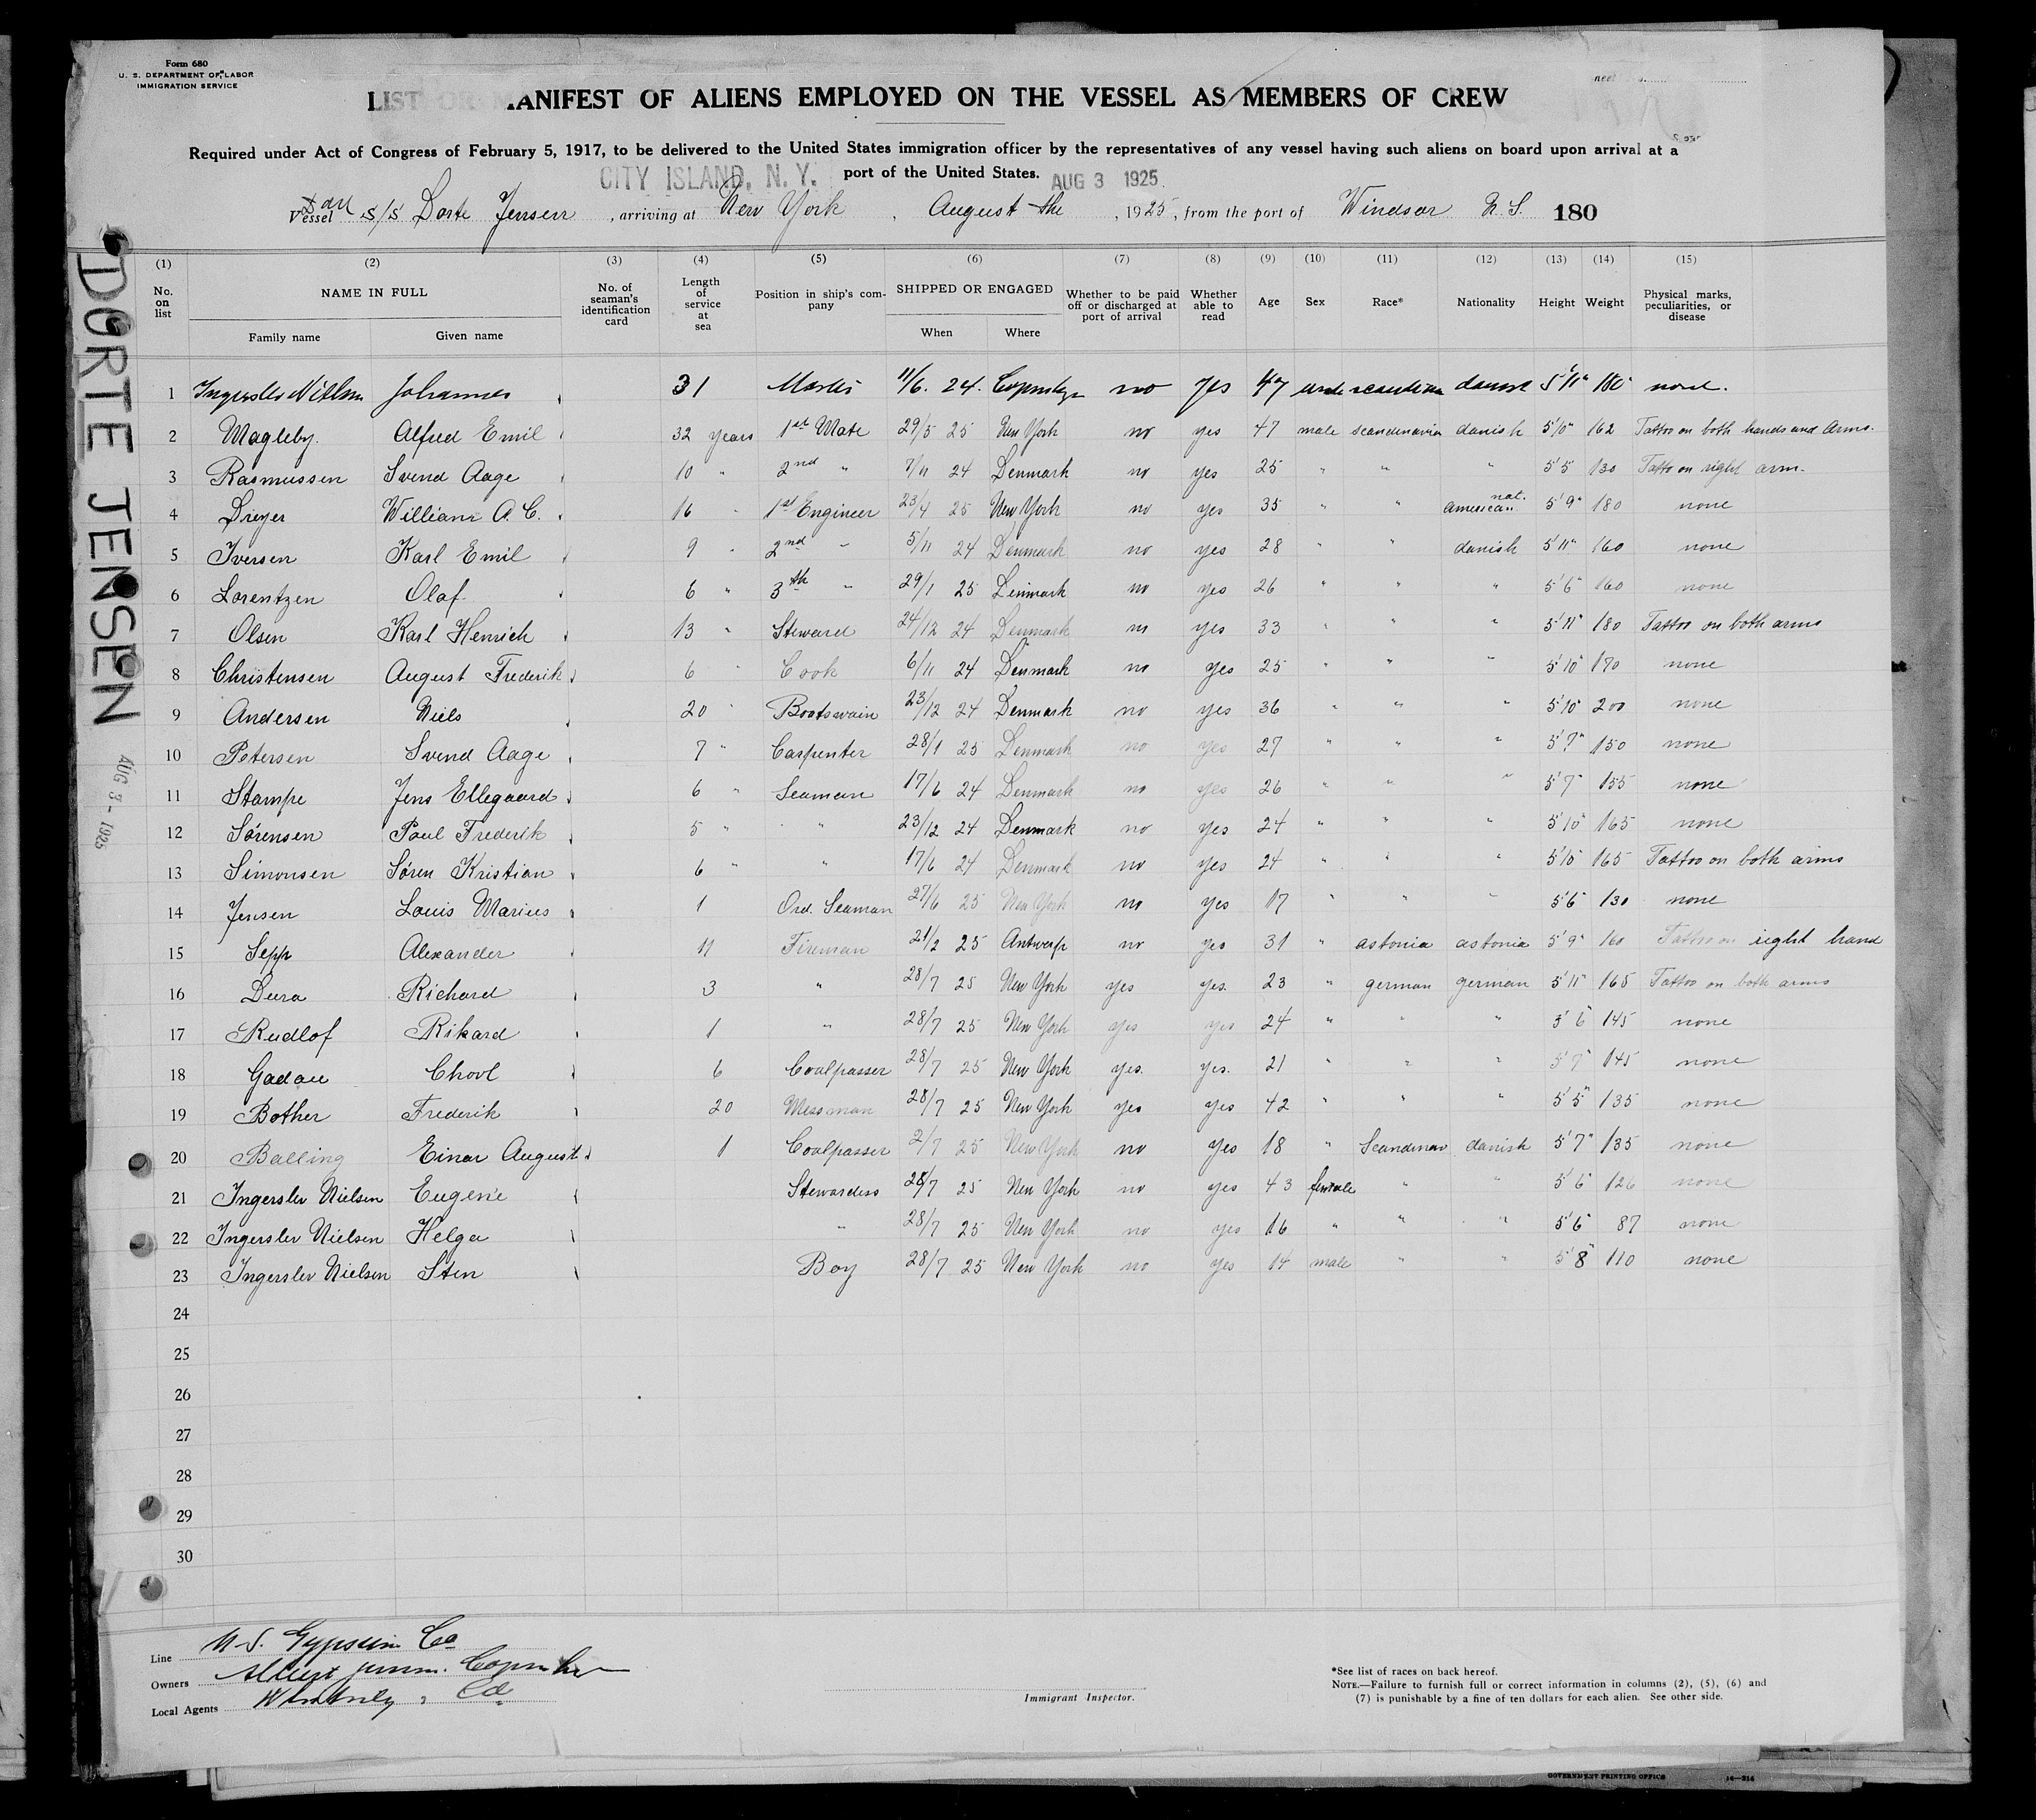 Form 680
U. S. DEPARTMENT OF LABOR
IMMIGRATION SERVICE
LIST OR MANIFEST OF ALIENS EMPLOYED ON THE VESSEL AS MEMBERS OF CREW
Required under Act of Congress of February 5, 1917, to be delivered to the United States immigration officer by the representatives of any vessel having such aliens on board upon arrival at a
port of the United States.
CITY ISLAND, N. Y. AUG 3 1925
Vessel S/S Dorte Jensen, arriving at New York, August the, 1925, from the port of Windsor N. S. 180
(1) (2) (3) (4) (5) (6) (7) (8) (9) (10) (11) (12) (13) (14) (15)
No. on list NAME IN FULL No. of seaman's identification card Length of service at sea Position in ship's company SHIPPED OR ENGAGED Whether to be paid off or discharged at port of arrival Whether able to read Age Sex Race* Nationality Height Weight Physical marks, peculiarities, or disease
Family name Given name When Where
1 Ingerslev Nielsen Johannes 31 Master 11/6. 24. no yes 47 danish 5'11" 180 none.
2 Magleby. Alfred Emil 32 years 1st Mate 29/5 25 New York no yes 47 male scandinavia danish 5'10" 162 Tattoo on both hands and arms.
3 Rasmussen Svend Aage 10 " 2nd " 7/11 24 Denmark no yes 25 " " " 5'5 130 Tatto on right arm.
4 Dreyer William A. C. 16 " 1st Engineer 23/4 25 New York no yes 35 " " american nat. 5'9" 180 none
5 Iversen Karl Emil 9 " 2nd " 5/11 24 Denmark no yes 28 " " danish 5'11" 160 none
6 Lorentzen Olaf 6 " 3th " 29/1 25 Denmark no yes 26 " " " 5'6" 160 none
7 Olsen Karl Henrich 13 " Steward 24/12 24 Denmark no yes 33 " " " 5'11" 180 Tattoo on both arms
8 Christensen August Frederik 6 " Cook 6/11 24 Denmark no yes 25 " " " 5'10" 170 none
9 Andersen Niels 20 " Bootswain 23/12 24 Denmark no yes 36 " " " 5'10" 200 none
10 Petersen Svend Aage 7 " Carpenter 28/1 25 Denmark no yes 27 " " " 5'7" 150 none
11 Stampe Jens Ellegaard 6 " Seaman 17/6 24 Denmark no yes 26 " " " 5'7" 155 none
12 Sørensen Poul Frederik 5 " " 23/12 24 Denmark no yes 24 " " " 5'10" 165 none
13 Simonsen Søren Kristian 6 " " 17/6 24 Denmark no yes 24 " " " 5'10" 165 Tattoo on both arms
14 Jensen Louis Marius 1 Ord. Seaman 27/6 25 New York no yes 17 " " " 5'6" 130 none
15 Sepp Alexander 11 Fireman 21/2 25 Antwerp no yes 31 " astonia astonia 5'9" 160 Tattoo on right hand
16 Dura Richard 3 " 28/7 25 New York yes yes. 23 " german german 5'11" 165 Tattoo on both arms
17 Rudlof Rikard 1 " 28/7 25 New York yes yes 24 " " " 3'6" 145 none
18 Gadau 6 Coalpasser 28/7 25 New York yes. yes. 21 " " " 5'7" 145 none
19 Bother Frederik 20 Messman 28/7 25 New York yes yes 42 " " " 5'5" 135 none
20 Balling Einar August 1 Coalpasser 2/7 25 New York no yes 18 " Scandinav danish 5'7" 135 none
21 Ingerslev Nielsen Eugenie Stewardess 28/7 25 New York no yes 43 female " " 5'6" 126 none
22 Ingerslev Nielsen Helga " 28/7 25 New York no yes 16 " " " 5'6" 87 none
23 Ingerslev Nielsen Sten Boy 28/7 25 New York no yes 14 male " " 5'8" 110 none
24
25
26
27
28
29
30
DORTE JENSEN
AUG 3 - 1925
Line Gypsum Co
Owners
Local Agents
Immigrant Inspector.
*See list of races on back hereof.
NOTE.—Failure to furnish full or correct information in columns (2), (5), (6) and
(7) is punishable by a fine of ten dollars for each alien. See other side.
GOVERNMENT PRINTING OFFICE 14—214